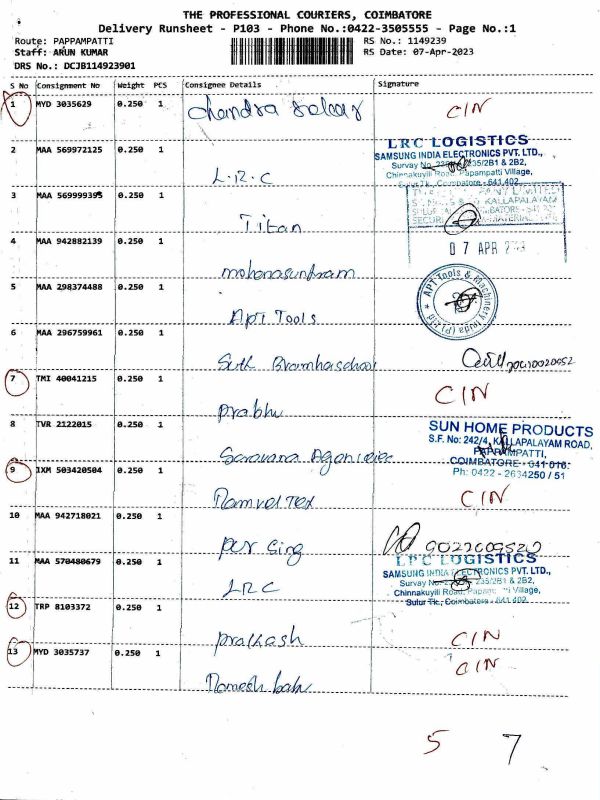 THE PROFESSIONAL COURIERS, COIMBATORE
Delivery Runsheet - P103 - Phone No.:0422-3505555 - Page No.:1
Route: PAPPAMPATTI
RS No.: 1149239
Staff: ARUN KUMAR
RS Date: 07-Apr-2023
DRS No.: DCJB114923901
S No Consignment No Weight PCS Consignee Details Signature
1 MYD 3035629 0.250 1 Chandra Sekar CIN
2 MAA 569972125 0.250 1 L.R.C
LRC LOGISTICS
SAMSUNG INDIA ELECTRONICS PVT. LTD.,
Survay No. 235/2B1 & 2B2,
Chinnakuyili Road, Papampatti Village,
Sulur Tk., Coimbatore - 641 402
3 MAA 569999395 0.250 1 Titan
07 APR
4 MAA 942882139 0.250 1 mohanasundram
5 MAA 298374488 0.250 1 APT Tools
APT Tools & Machinery India (P) Ltd
6 MAA 296759961 0.250 1
7 TMI 40041215 0.250 1 Prabhu CIN
8 TVR 2122015 0.250 1 Saravana
SUN HOME PRODUCTS
S.F. No: 242/4, KALLAPALAYAM ROAD,
PAPPAMPATTI,
COIMBATORE - 641 016.
Ph: 0422 - 2634250 / 51
9 IXM 503420504 0.250 1 CIN
10 MAA 942718021 0.250 1
11 MAA 570480679 0.250 1 LRC
LRC LOGISTICS
SAMSUNG INDIA ELECTRONICS PVT. LTD.,
Survay No. 235/2B1 & 2B2,
Chinnakuyili Road, Papampatti Village,
Sulur Tk., Coimbatore - 641 402
12 TRP 8103372 0.250 1 Prakash CIN
13 MYD 3035737 0.250 1 Ramesh babu CIN
5 7